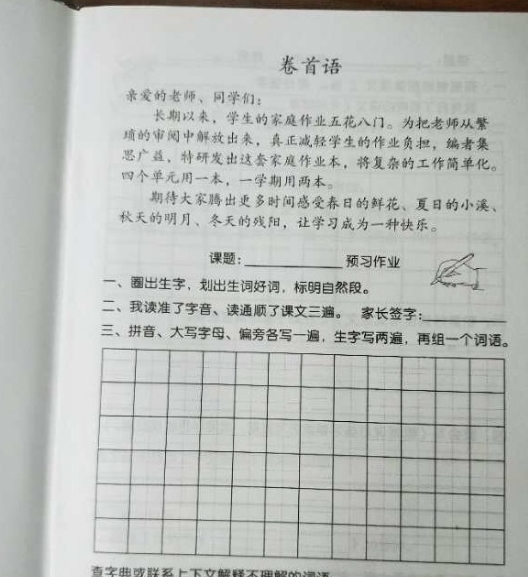 卷首语
亲爱的老师、同学们：
长期以来，学生的家庭作业五花八门。为把老师从繁
琐的审阅中解放出来，真正减轻学生的作业负担，编者集
思广益，特研发出这套家庭作业本，将复杂的工作简单化。
四个单元用一本，一学期用两本。
期待大家腾出更多时间感受春日的鲜花、夏日的小溪、
秋天的明月、冬天的残阳，让学习成为一种快乐。
课题：____________ 预习作业
一、圈出生字，划出生词好词，标明自然段。
二、我读准了字音、读通顺了课文三遍。 家长签字：____________
三、拼音、大写字母、偏旁各写一遍，生字写两遍，再组一个词语。
查字典或联系上下文解释不理解的词语